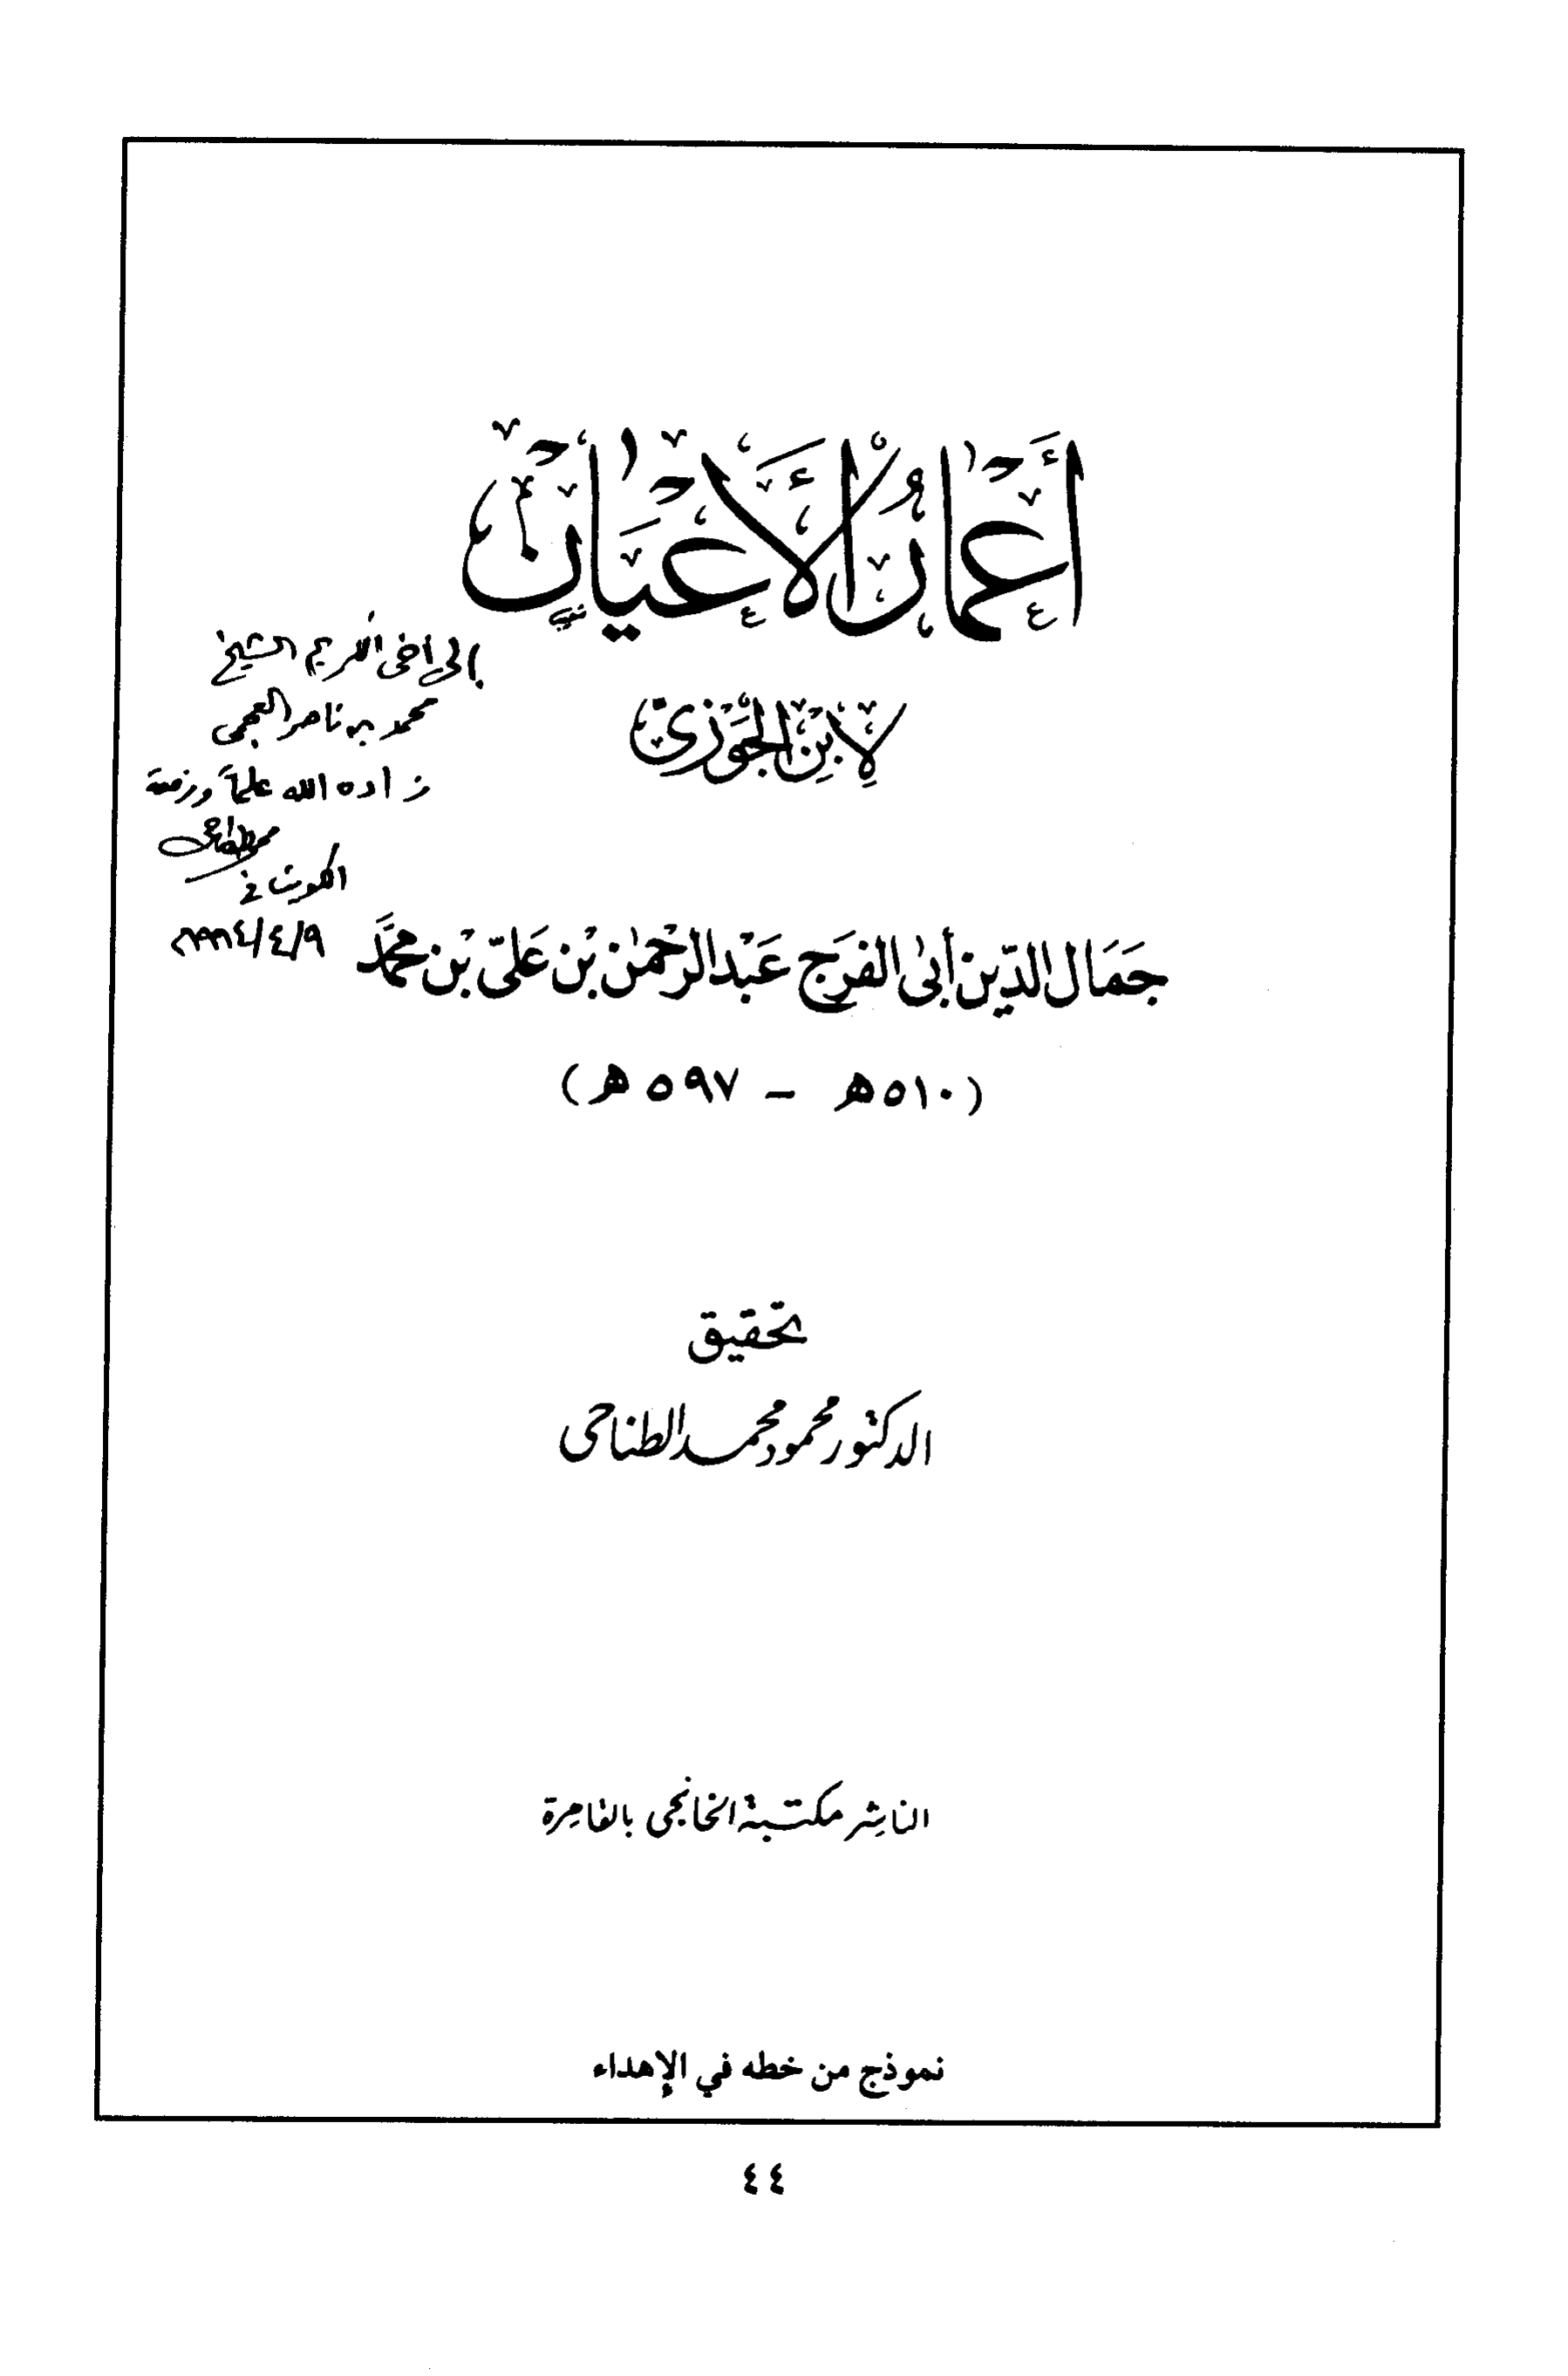 أَعْمَارُ الْأَعْيَان
إلى أخى الكريم الشيخ
محمد بن ناصر العجمى
زاده الله علمًا ورفعة
الكويت فى
٩/٤/١٩٩٤م
لِابْنِ الْجَوْزِيّ
جَمَال الدّين أبى الفَرَج عَبْد الرحْمٰن بْن عَلىّ بْن محمَّد
(٥١٠هـ - ٥٩٧هـ)
تحقيق
الدكتور محمود محمد الطناحى
الناشر مكتبة الخانجى بالقاهرة
نموذج من خطه في الإهداء
٤٤